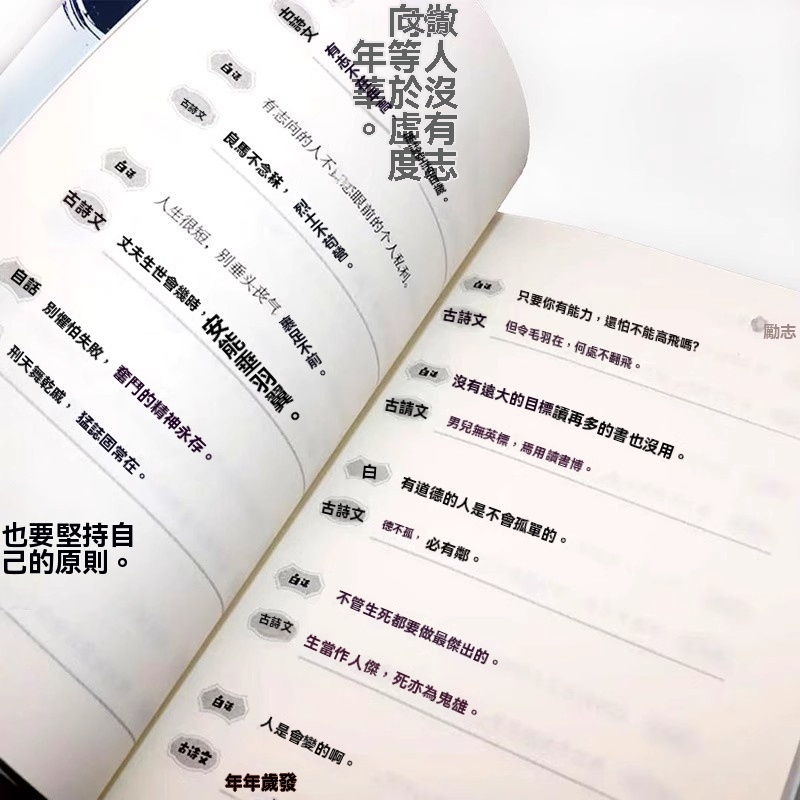 做人沒有志
向等於虛度
年華。
古詩文
白话
有志向的人不
眼前的个人私利。
古詩文
良馬不念秣，烈士不苟營。
白话
人生很短，别垂头丧气
裹足不前。
古詩文
丈夫生世會幾時，安能垂羽翼。
自話
別懼怕失敗，奮鬥的精神永存。
刑天舞乾戚，猛誌固常在。
也要堅持自
己的原則。
勵志
白话
只要你有能力，還怕不能高飛嗎？
古詩文
但令毛羽在，何處不翻飛。
白话
沒有遠大的目標讀再多的書也沒用。
古請文
男兒無英標，焉用讀書博。
白
有道德的人是不會孤單的。
古詩文
德不孤，必有鄰。
白话
不管生死都要做最傑出的。
古詩文
生當作人傑，死亦為鬼雄。
白话
人是會變的啊。
古诗文
年年歲發